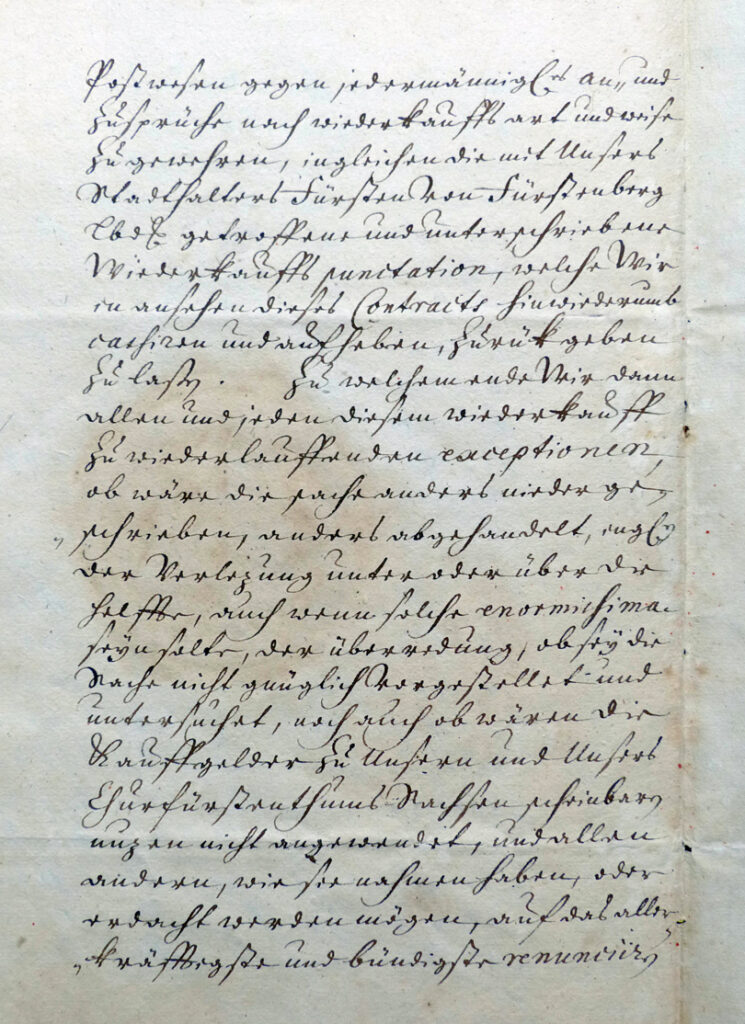 Postwesen gegen jedermännigl. an- und
Zusprüche nach wiederkauffs art und weise
zu gewehren, ingleichen die mit Unsers
Stadthalters Fürsten von Fürstenberg
Lbd. getroffene und unterschriebene
Wiederkauffs punctation, welche Wir
in ansehen dieses Contracts hinwiederumb
cassiren und aufheben, zurük geben
zu laßen. Zu welchem ende Wir dann
allen und jeden diesem wiederkauff
zu wiederlauffenden exceptionen,
ob wäre die sache anders nieder ge-
schrieben, anders abgehandelt,
der Verlezung unter oder über die
helffte, auch wenn solche enormissima
seyn solte, der überredung, ob sey die
Sache nicht gnüglich vorgestellet und
untersuchet, noch auch ob wären die
Kauffgelder zu Unsern und Unsers
Churfürstenthums Sachsen scheinbaren
nuzen nicht angewendet, und allen
andern, wie sie nahmen haben, oder
erdacht werden mögen, auf das aller-
kräfftigste und bündigste renunciiren